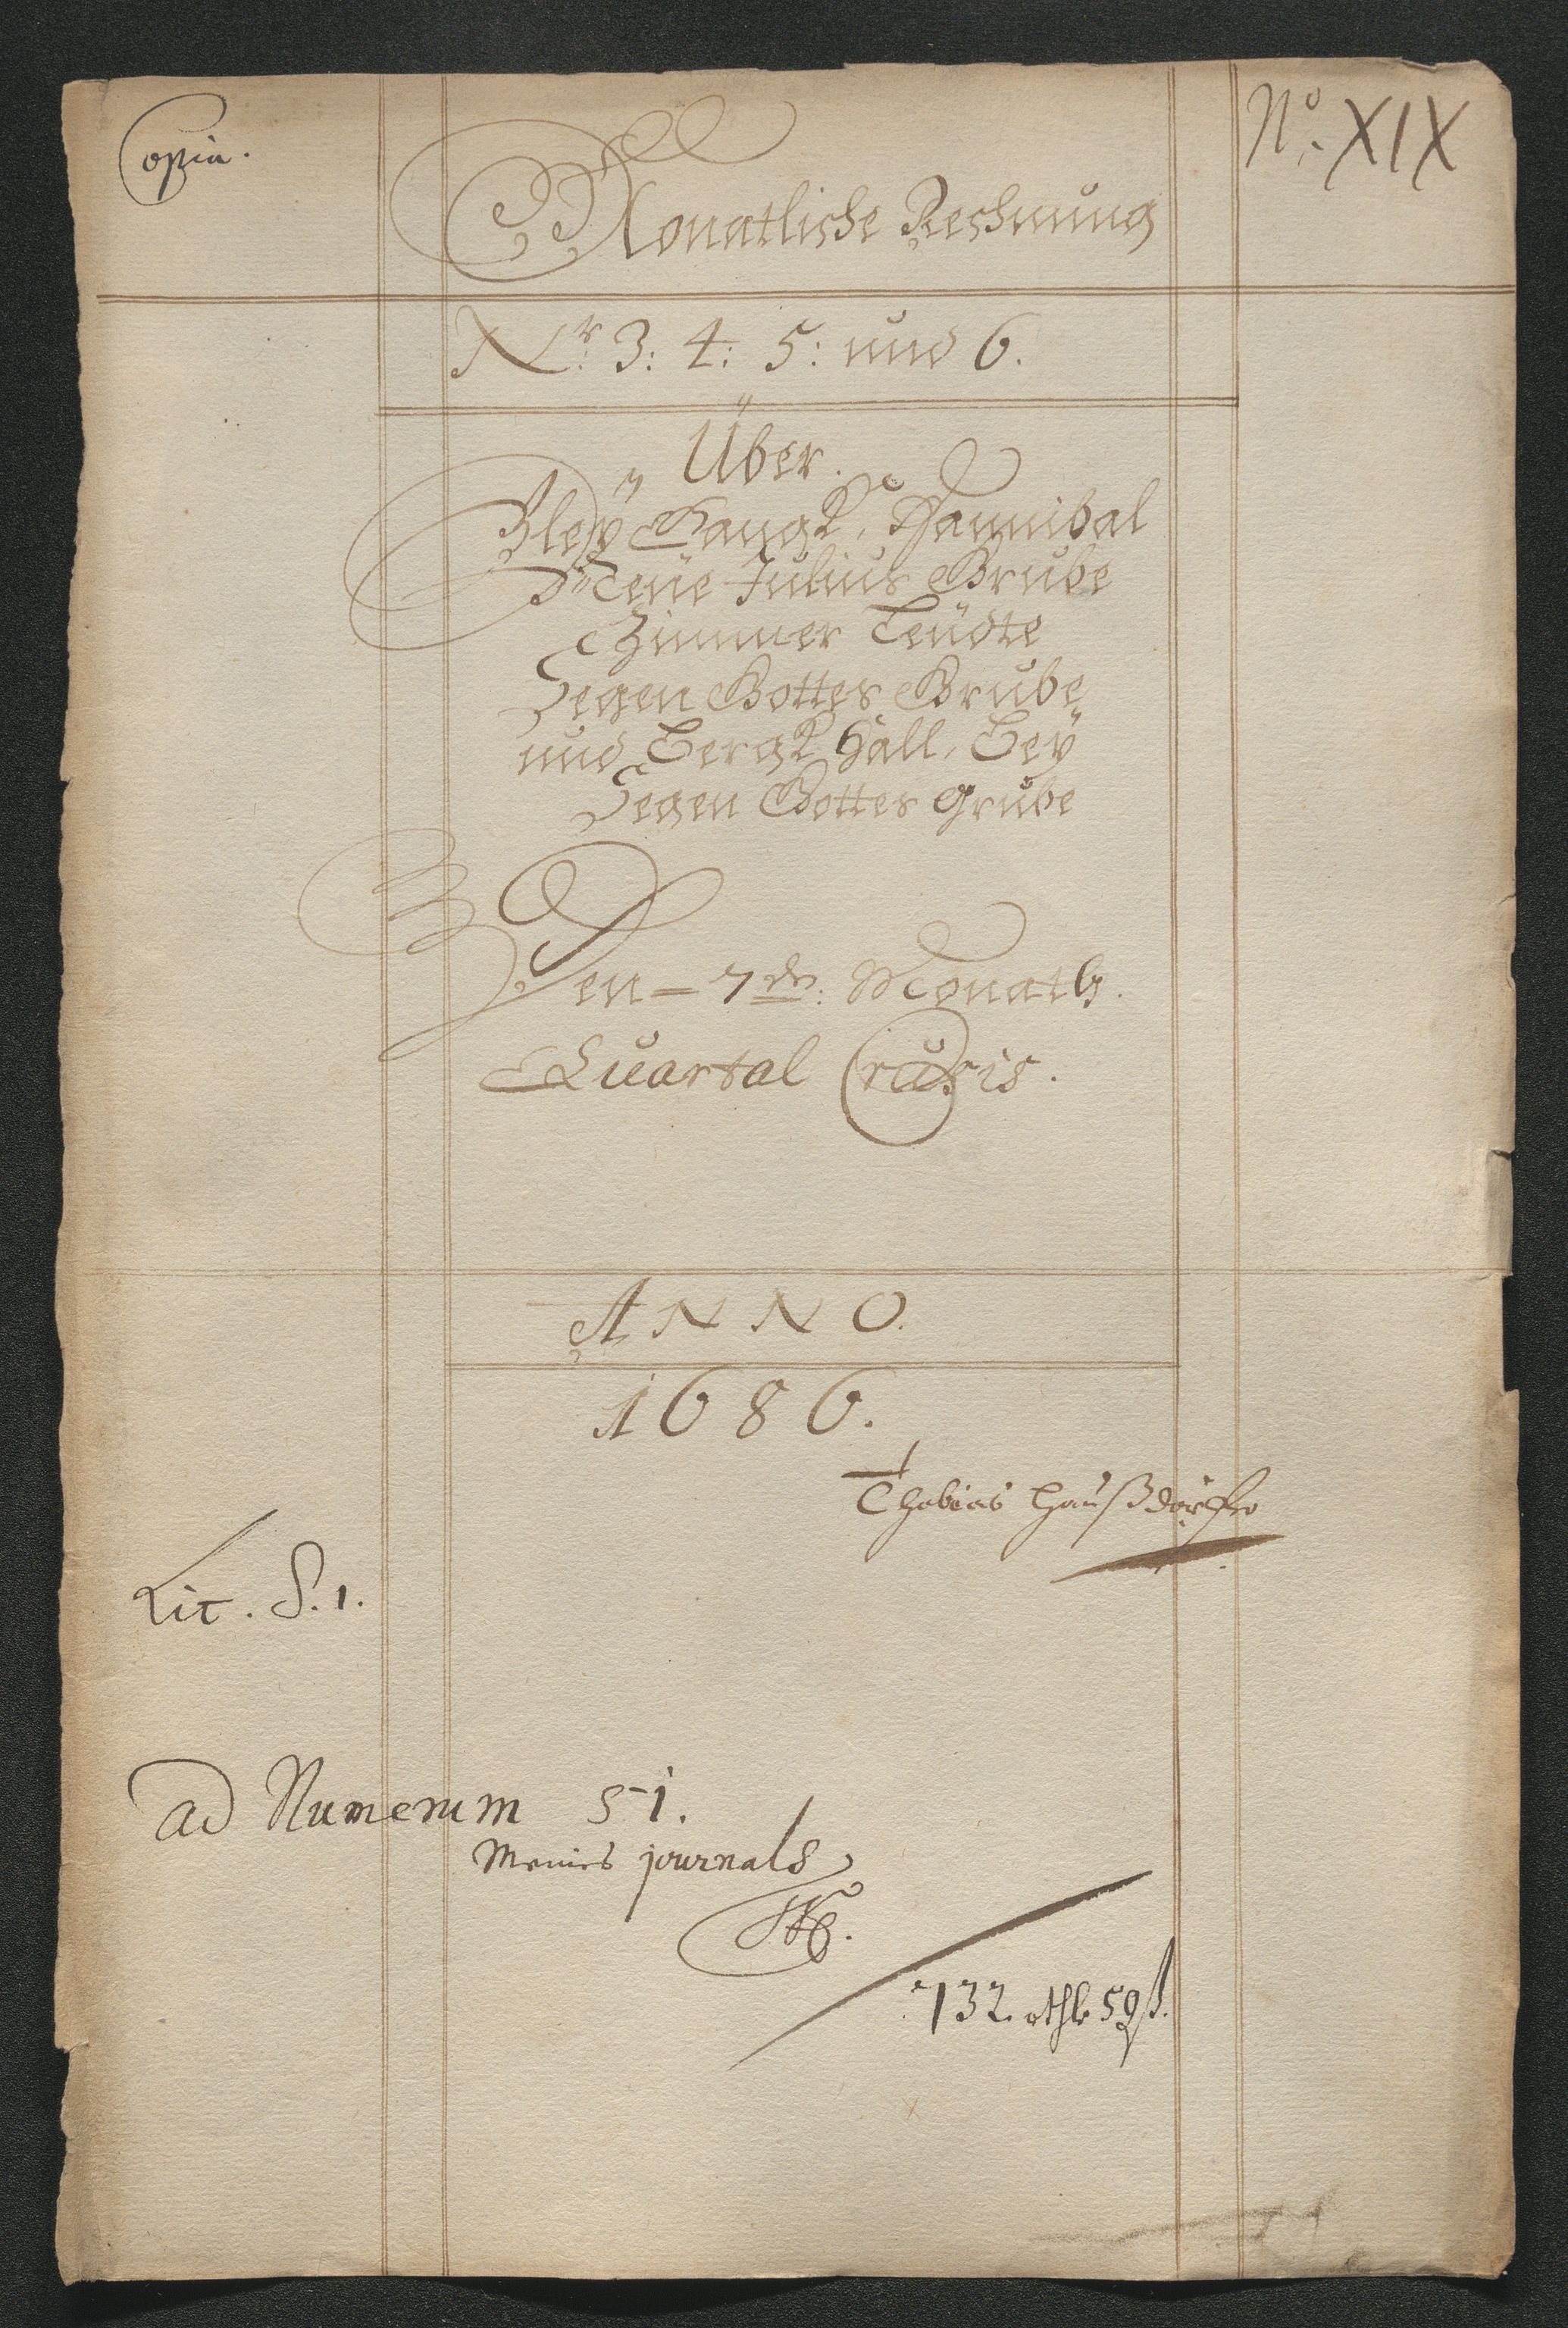 Copia.
No. XIX
Monatliche Rechnung
Nr: 3: 4: 5: und 6.
Über.
Bley Gangk, Hannibal
Neue Julius Grube
Zimmer Leüdte
Segen Gottes Grube
und Bergk Hall, Bey
Segen Gottes Grube
Den = 7den: Monath.
Quartal Crucis.
ANNO.
1686.
Thobias Haußdörffer
Lit. S. 1.
ad Numerum 51.
Meines journals
732. rthlr 59 ß.